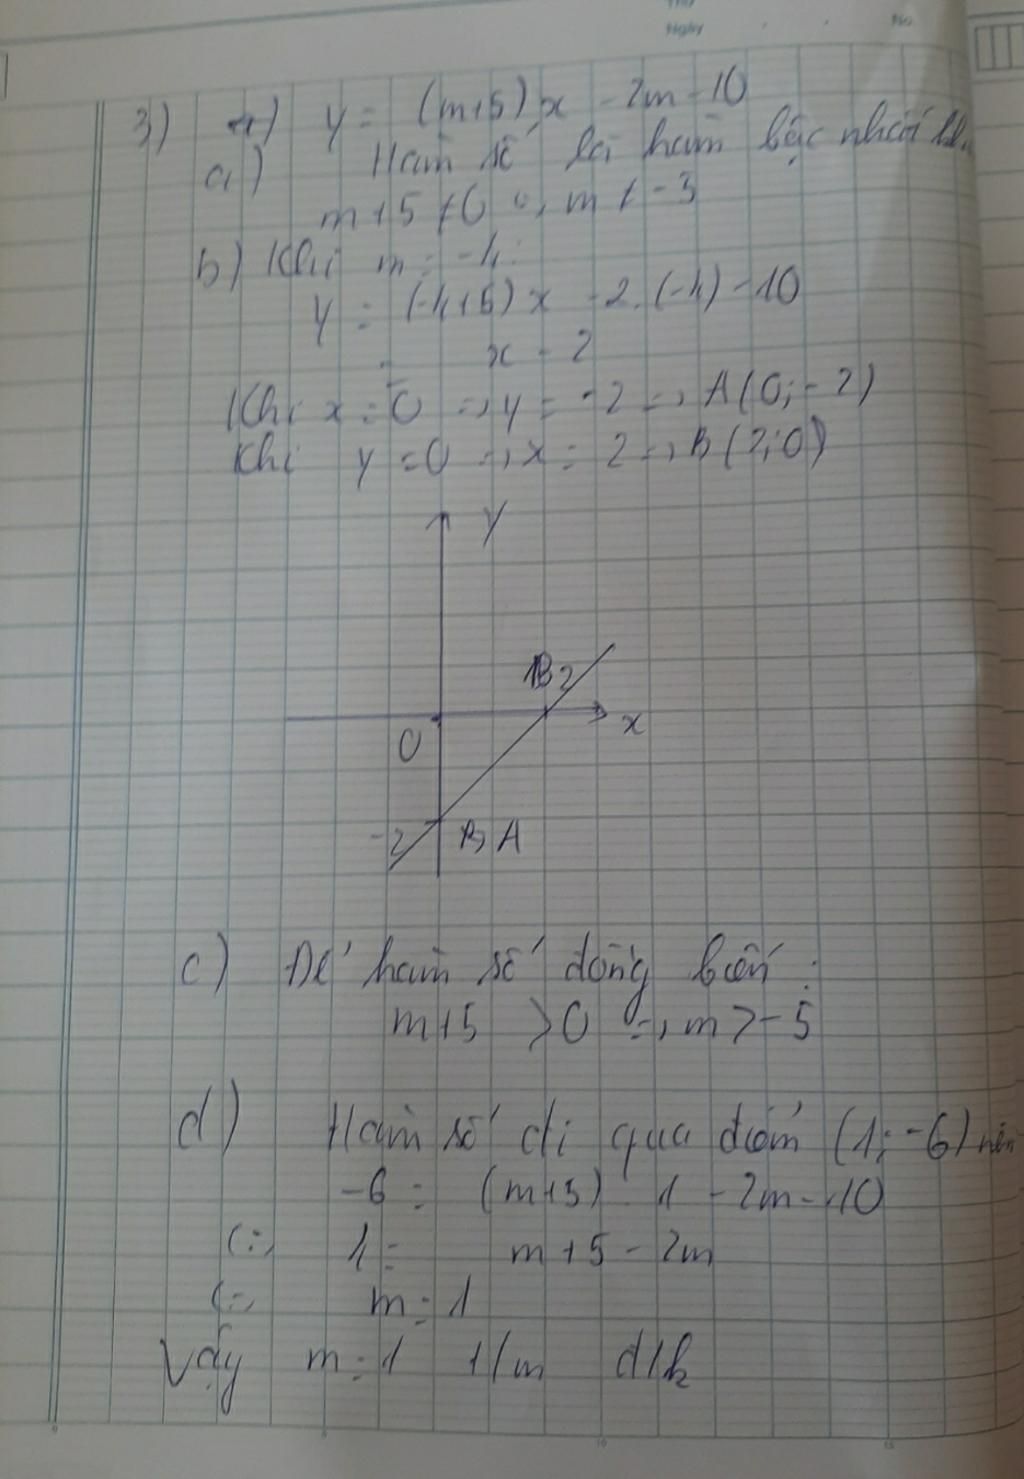 Ngày No
3) y = (m+5)x - 2m - 10
a) Hàm số là hàm bậc nhất khi
m+5 ≠ 0 => m ≠ -5
b) Khi m = -4:
y = (-4+5)x - 2.(-4) - 10
= x - 2
Khi x = 0 => y = -2 => A(0; -2)
Khi y = 0 => x = 2 => B(2; 0)
y
B 2
O x
-2 A
c) Để hàm số đồng biến:
m+5 > 0 => m > -5
d) Hàm số đi qua điểm (1; -6) nên
-6 = (m+5) 1 - 2m - 10
<=> 4 = m+5 - 2m
<=> m = 1
Vậy m = 1 t/m đ/k
0 5 10 15